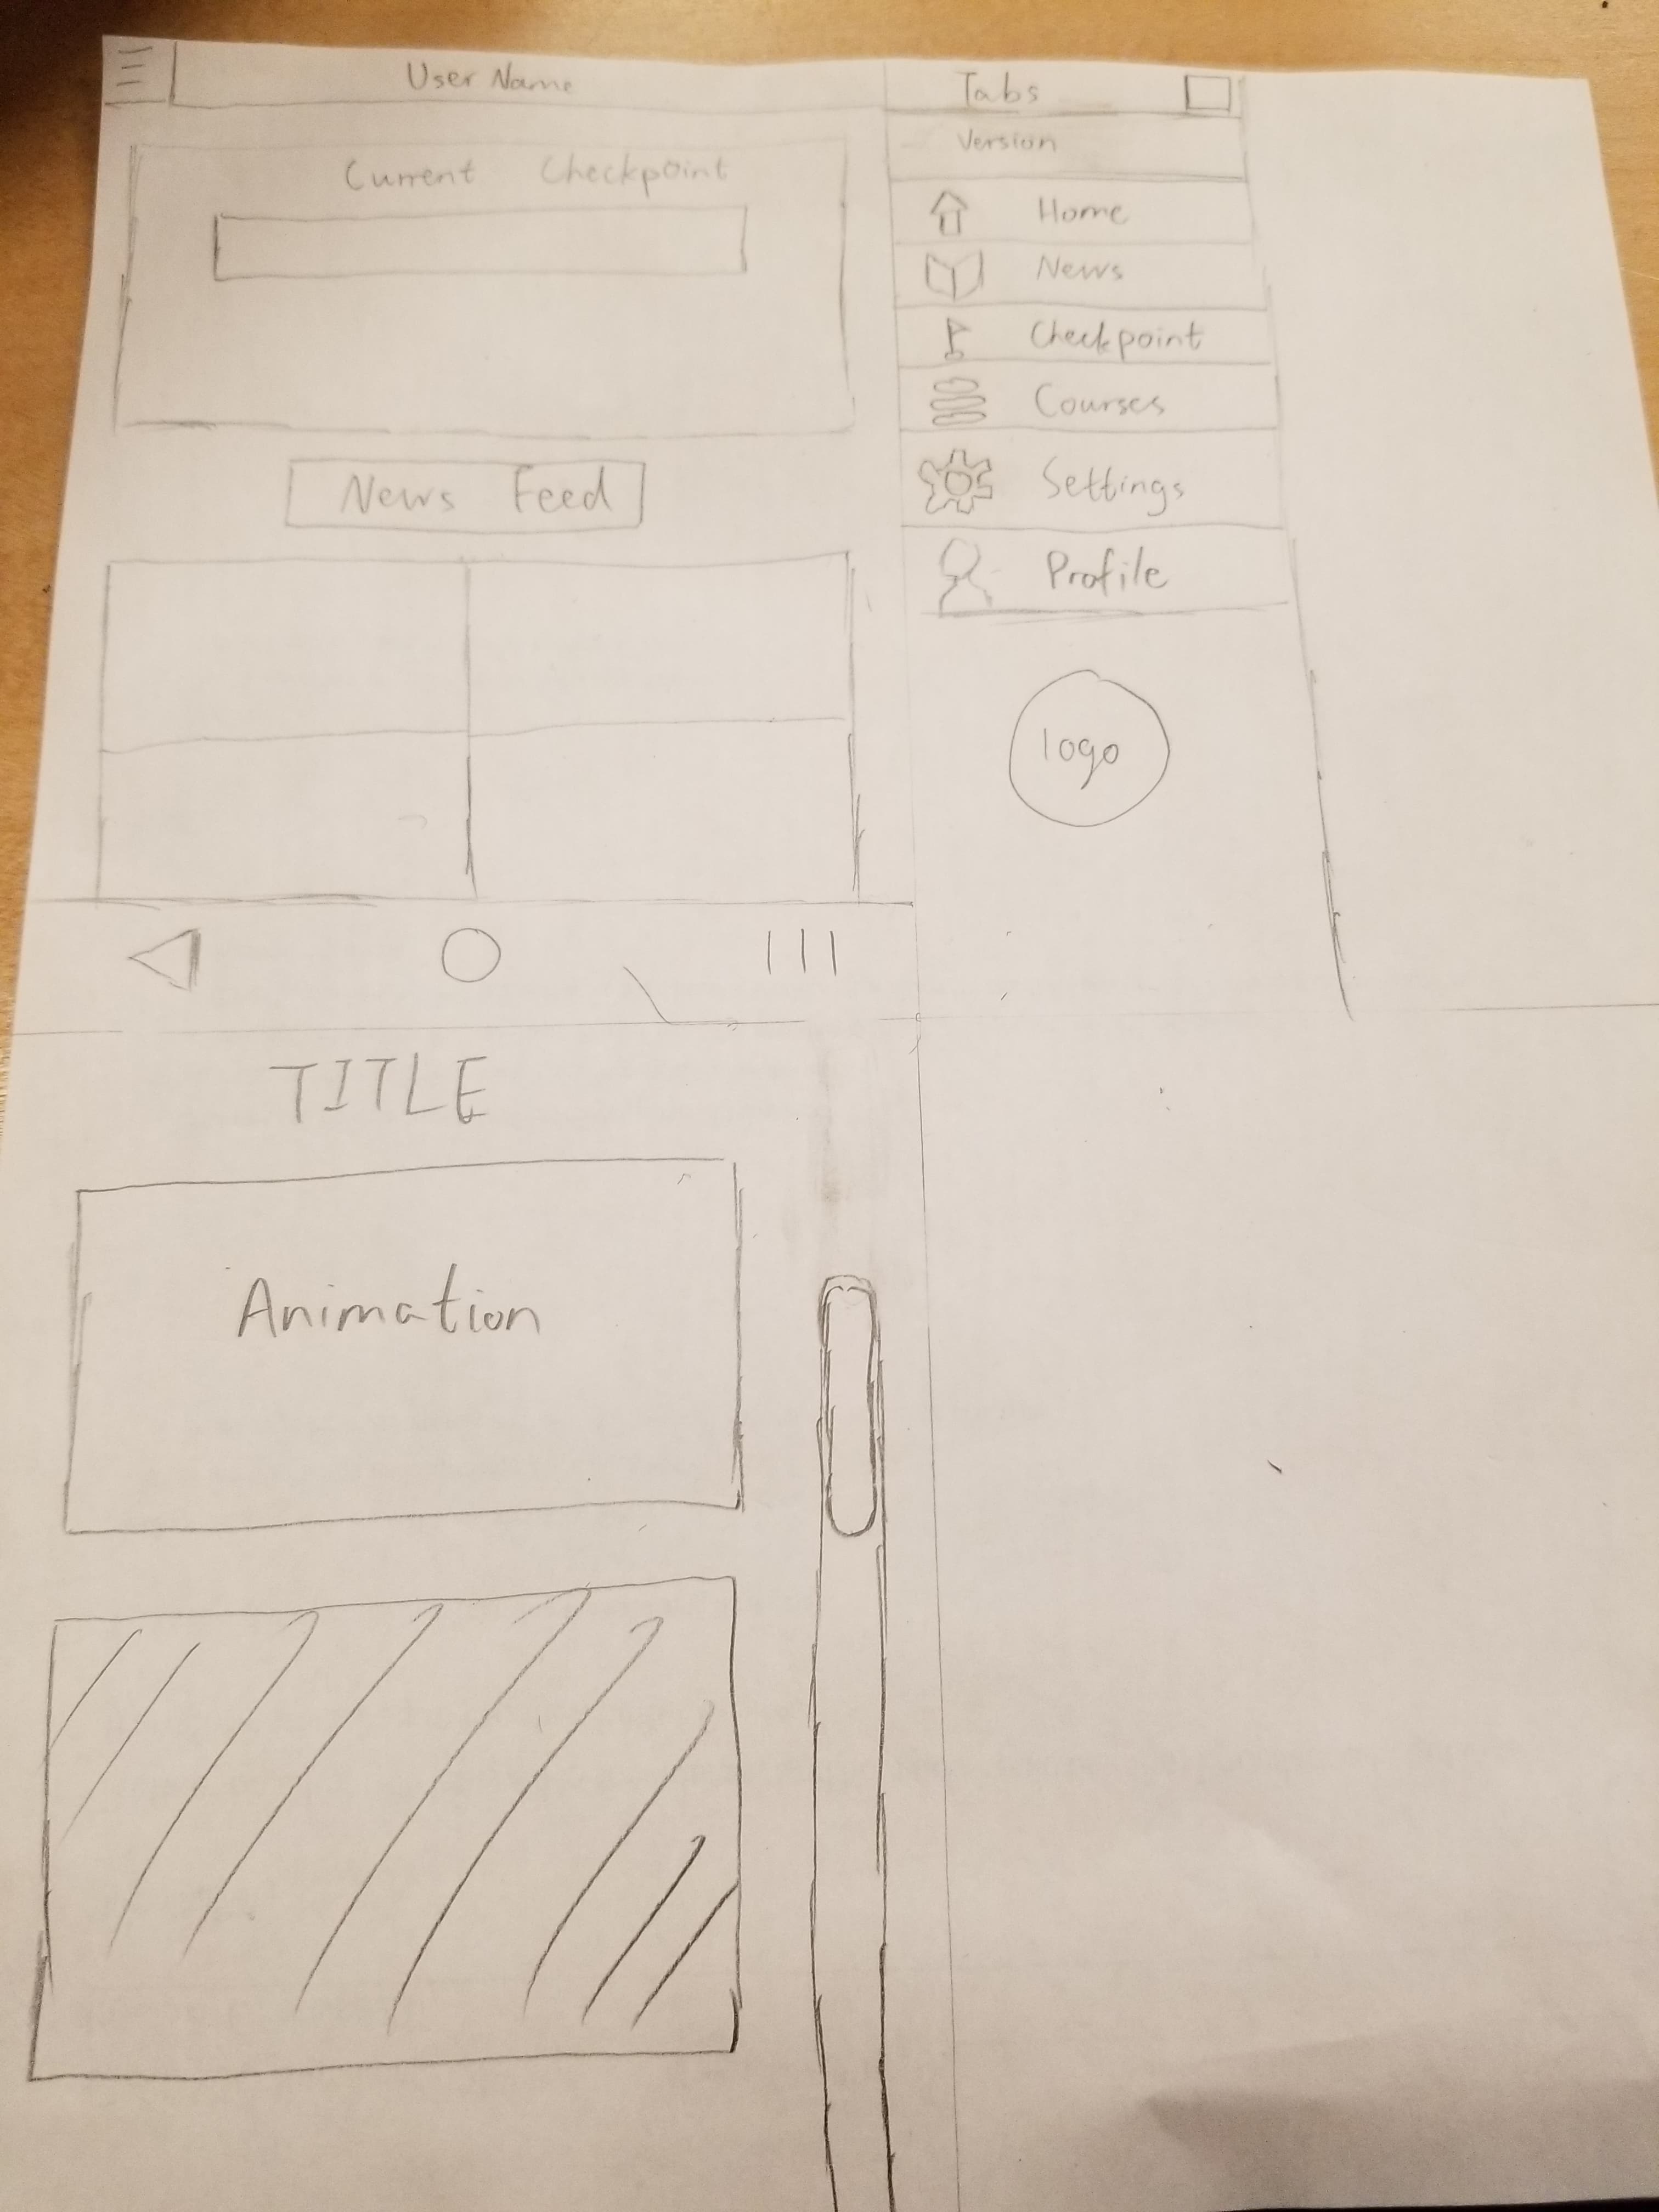 User Name
Current Checkpoint
News Feed
Tabs
Version
Home
News
Checkpoint
Courses
Settings
Profile
logo
TITLE
Animation